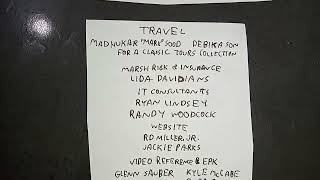 TRAVEL
MADHUKAR "MARK" SOOD DEBIKA SON
FOR A CLASSIC TOURS COLLECTION
MARSH RISK & INSURANCE
LIDA DAVIDIANS
IT CONSULTANTS
RYAN LINDSEY
RANDY WOODCOCK
WEBSITE
RD MILLER, JR.
JACKIE PARKS
VIDEO REFERENCE & EPK
GLENN SAUBER KYLE McCABE